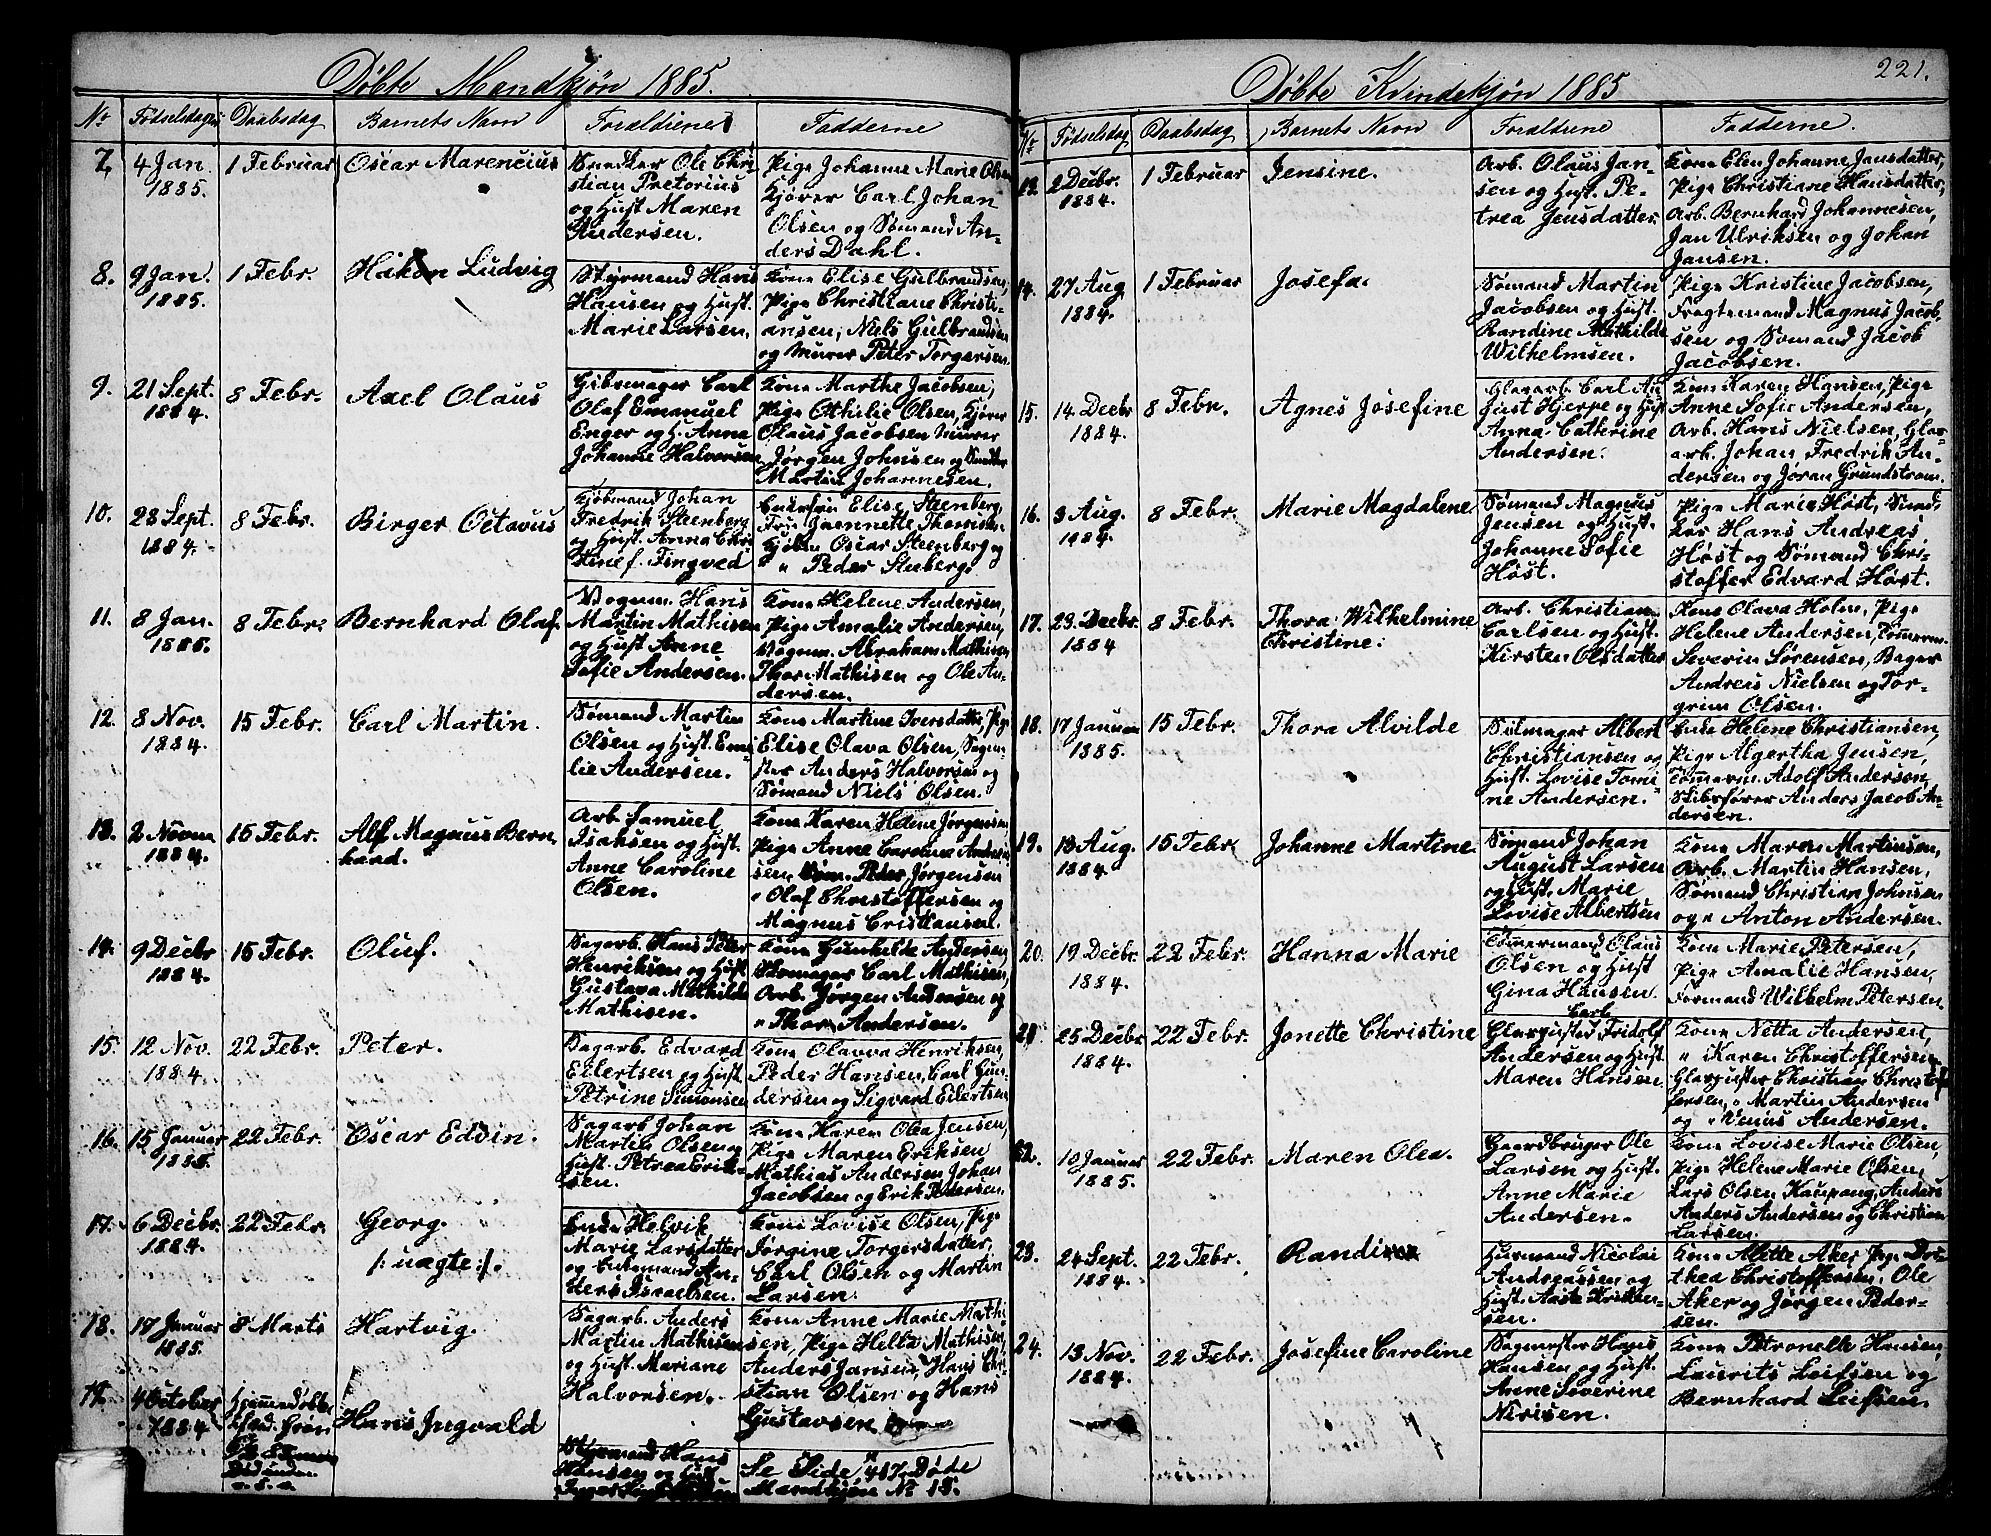 Døbte Mandkjøn 1885.
No Fødselsdagen Daabsdag Barnets Navn Forældrene Fadderne
7. 4 Jan. 1885. 1 Februar Oscar Marencius
Snedker Ole Chri-
stian Pretorius
og Hust. Maren
Andersen.
Pige Johanne Marie Olsen
Kjører Carl Johan
Olsen og Sømand An-
ders Dahl.
8. 9 Jan. 1885. 1 Febr. Håkon Ludvig
Styrmand Hans
Hansen og Hust.
Marie Larsen.
Kone Elise Gulbrandsen,
Pige Christiane Christi-
ansen, Niels Gulbrandsen
og Murer Peter Torgersen.
9. 21 Sept. 1884. 8 Febr. Axel Olaus
Gibsmager Carl
Olaf Emanuel
Enger og H. Anna
Johanne Halvorsen
Kone Marthe Jacobsen,
Pige Othilie Olsen, Kjører
Olaus Jacobsen Murer
Jørgen Johnsen og
Martin Johannesen.
10. 28 Sept. 1884. 8 Febr. Birger Octavus
Kjøbmand Johan
Fredrik Steenberg
og Hust. Anna Chri-
stine f. Tingved
Enkefru Elise Steenberg
Fru Jeannette Thomsen
Kjøbm Oscar Steenberg og
" Peder Steberg.
11. 8 Jan. 1885. 8 Febr. Bernhard Olaf.
Vognm. Hans
Martin Mathisen
og Hust Anne
Sofie Andersen.
Kone Helene Andersen,
Pige Amalie Andersen,
Vognm. Abraham Mathisen
Thor Mathisen og Ole An-
dersen.
12. 8 Nov. 1884. 15 Febr. Carl Martin.
Sømand Martin
Olsen og Hust. Emi-
lie Andersen.
Kone Martine Iversdatter, Pige
Elise Olava Olsen, Sagm-
ster Anders Halvorsen og
Sømand Niels Olsen.
13. 2 Novem 1884. 15 Febr. Alf Magnus Bern-
hard.
Arb Samuel
Isaksen og Hust.
Anne Caroline
Olsen.
Kone Karen Helene Jørgensen
Pige Anne Caroline Andrea-
sen, Søm. Peder Jørgensen
" Olaf Christoffersen og
Magnus Cristiansen.
14. 9 Decbr 1884. 15 Febr. Oluf.
Sagarb. Hans Peter
Henriksen og Hust
Gustava Mathilde
Mathisen.
Kone Gunhilde Andersen
Skomager Carl Mathisen,
Arb. Jørgen Andersen og
" Thor Andersen.
15. 12 Nov. 1884 22 Febr. Peter.
Sagarb. Edvard
Eilertsen og Hust
Petrine Simonsen
Kone Olavva Henriksen,
Peder Hansen, Carl Gun-
dersen og Sigvard Eilertsen
16. 15 Januar 1885. 22 Febr. Oscar Edvin.
Sagarb Johan
Martin Olsen og
Hust. Petrea Erik-
sen.
Kone Karen Olea Jensen,
Pige Maren Eriksen
Mathias Andersen Johan
Jacobsen og Erik Petersen.
17. 6 Decbr. 1884. 22 Febr. Georg.
/: uægte :/.
Enke Helvik
Marie Larsdatter
og Enkemand An-
ders Israelsen.
Kone Lovise Olsen, Pige
Jørgine Torgersdatter,
Carl Olsen og Martin
Larsen.
18. 17 Januar 1885. 8 Marts Hartvig.
Sagarb. Anders
Martin Mathisen
og Hust. Mariane
Halvorsen.
Kone Anne Marie Mathi-
sen, Pige Hella Mathisen,
Anders Jansen, Hans Chri-
stian Olsen og Hans
Gustavsen.
19. 4 October 1884 Hjemmedøbt
Hans Ingvald
Styrmand Hans
Hansen og Hust
Se Side 487, Døde
Mandkjøn No 13.
Døbte Kvindekjøn 1885
221.
No Fødselsdag Daabsdag Barnets Navn Forældrene Fadderne.
13. 2 Decbr. 1884. 1 Februar Jensine.
Arb. Olaus Jan-
sen og Hust. Pe-
trea Jensdatter
Kone Elen Johanne Jansdatter,
Pige Christiane Hansdatter,
Arb. Bernhard Johannesen,
Jan Ulriksen og Johan
Jansen.
14. 27 Aug 1884. 1 Februar Josefa.
Sømand Martin
Jacobsen og Hust.
Randine Mathilde
Wilhelmsen.
Pige Kristine Jacobsen,
Fragtemand Magnus Jacob-
sen og Sømand Jacob
Jacobsen.
15. 14 Decbr 1884. 8 Febr. Agnes Josefine
Glasarb. Carl Au-
gust Hjerpe og Hust
Anna Catherine
Andersen.
Kone Karen Hansen, Pige
Anne Sofie Andersen,
Arb. Hans Nielsen, Glas-
arb. Johan Fredrik An-
dersen og Jøran Grundstrøm.
16. 3 Aug. 1884. 8 Febr. Marie Magdalene
Sømand Magnus
Jensen og Hust.
Johanne Sofie
Høst.
Pige Marie Høst, Sned-
ker Hans Andreas
Høst og Sømand Chri-
stoffer Edvard Høst.
17. 23. Decbr. 1884 8 Febr. Thora Wilhelmine
Christine.
Arb. Christian
Carlsen og Hust.
Kirsten Olsdatter
Kone Olava Holm, Pige
Helene Andersen, Tømerm.
Severin Sørensen, Bager
Andreas Nielsen og Tor-
grim Olsen.
18. 17 Januar 1885. 15 Febr. Thora Alvilde
Seilmager Albert
Christiansen og
Hust. Lovise Tomi-
ne Andersen.
Enke Helene Christiansen,
Pige Algertha Jensen,
Tømmerm. Adolf Andersen,
Skibsfører Anders Jacob An-
dersen.
19. 13 Aug. 1884. 15 Febr Johanne Martine.
Sømand Johan
August Larsen
og Hust. Marie
Lovise Albertsen
Kone Maren Martinsen,
Arb. Martin Hansen,
Sømand Christian Johnsen
og " Anton Andersen.
20. 19 Decbr. 1884. 22 Febr. Hanna Marie
Tømmermand Olaus
Olsen og Hust
Gina Hansen.
Kone Marie Petersen,
Pige Amalie Hansen,
Formand Wilhelm Petersen.
21 25 Decbr 1884. 22 Febr. Jonette Christine
Carl
Glaspuster Fridolf
Andersen og Hust.
Maren Hansen.
Kone Netta Andersen,
" Karen Christoffersen,
Glaspuster Christian Christof-
fersen, " Martin Andersen
og " Venius Andersen.
22. 10 Januar 1885. 22 Febr. Maren Olea.
Gaardbruger Ole
Larsen og Hust.
Anne Marie
Andersen.
Kone Lovise Marie Olsen,
Pige Helene Marie Olsen,
Lars Olsen Kaupang, Anders
Anders Andersen og Christian
Larsen.
23. 24 Sept. 1884. 22 Febr. Randine
Huusmand Nicolai
Andreassen og
Hust. Aaste Kristen-
sen.
Kone Alette Aker, Pige Do-
thea Christoffersen. Ole
Aker og Jørgen Peder-
sen.
24. 13 Nov. 1884. 22 Febr. Josefine Caroline
Sagmester Hans
Hansen og Hust.
Anne Severine
Nirisen.
Kone Petronelle Hansen,
Laurits Leifsen og
Bernhard Leifsen.